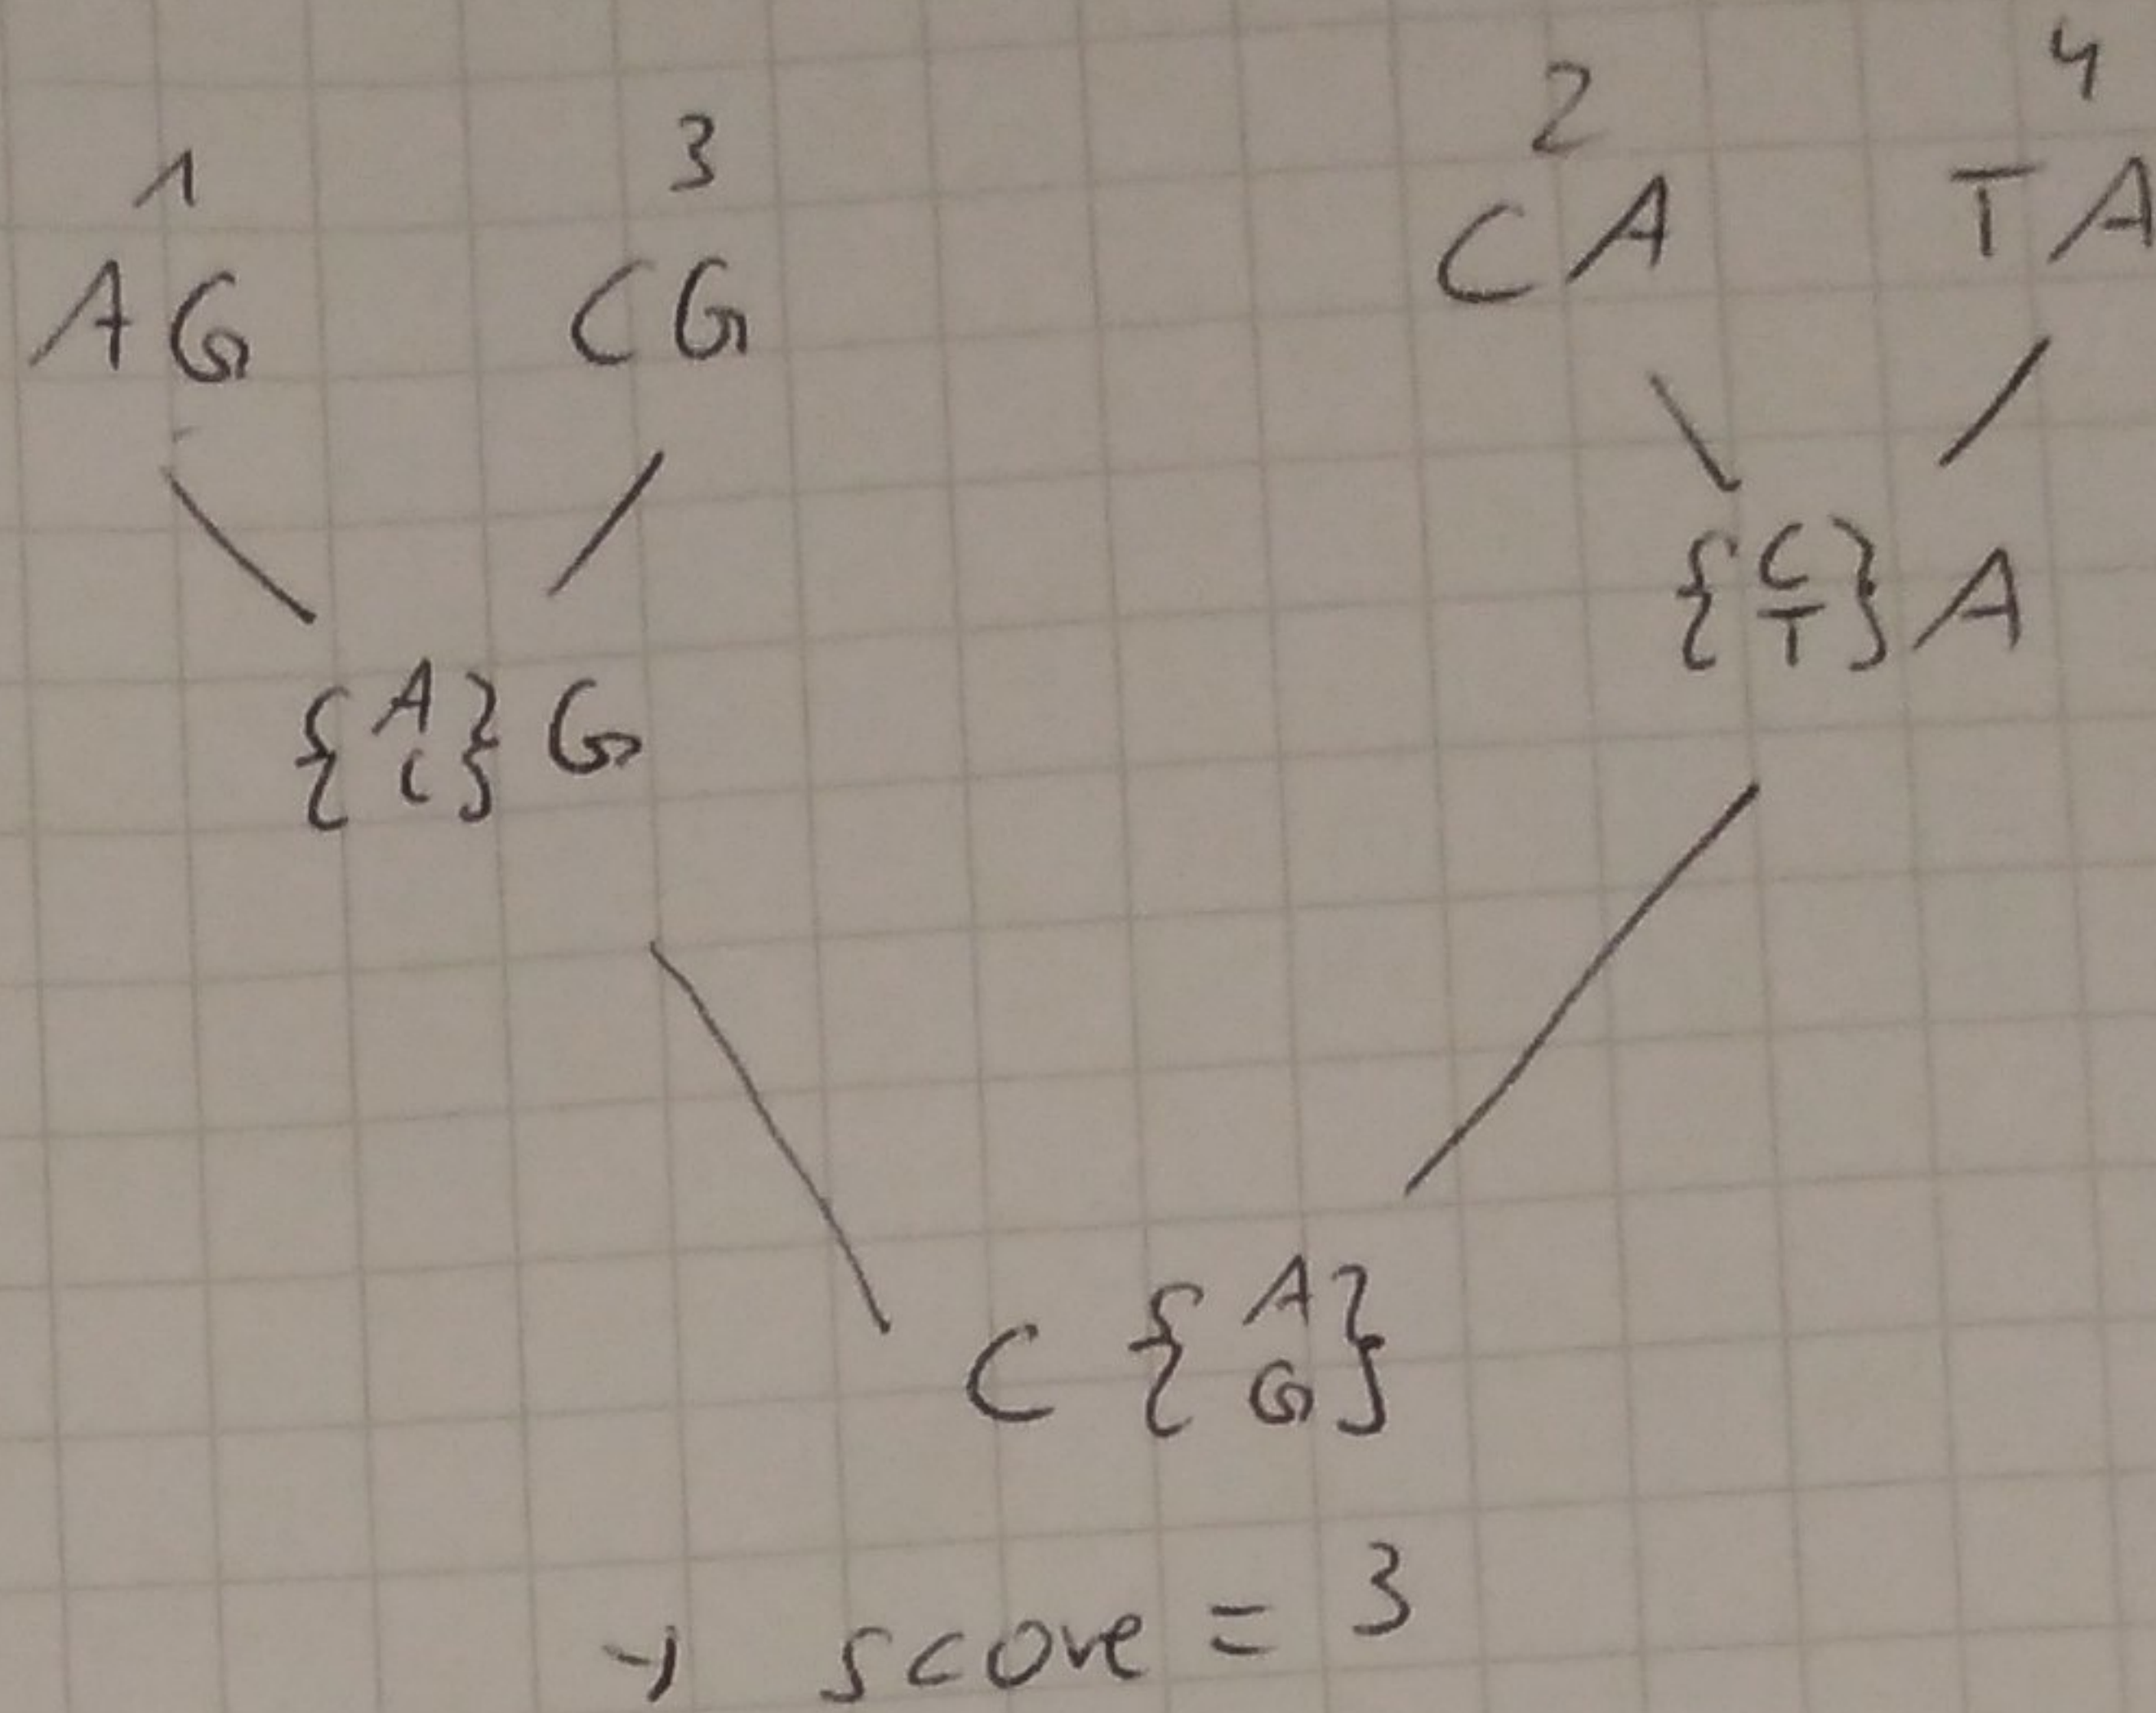 1 3 2 4
AG CG CA TA
{A C} G {C T} A
C {A G}
→ score = 3